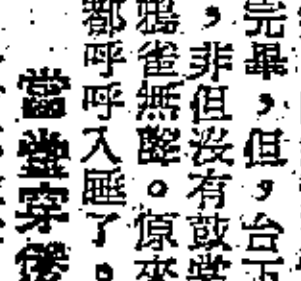 完畢，但，台下
，非但沒有鼓掌
鴉雀無聲。原來
都呼呼入睡了。
當堂穿